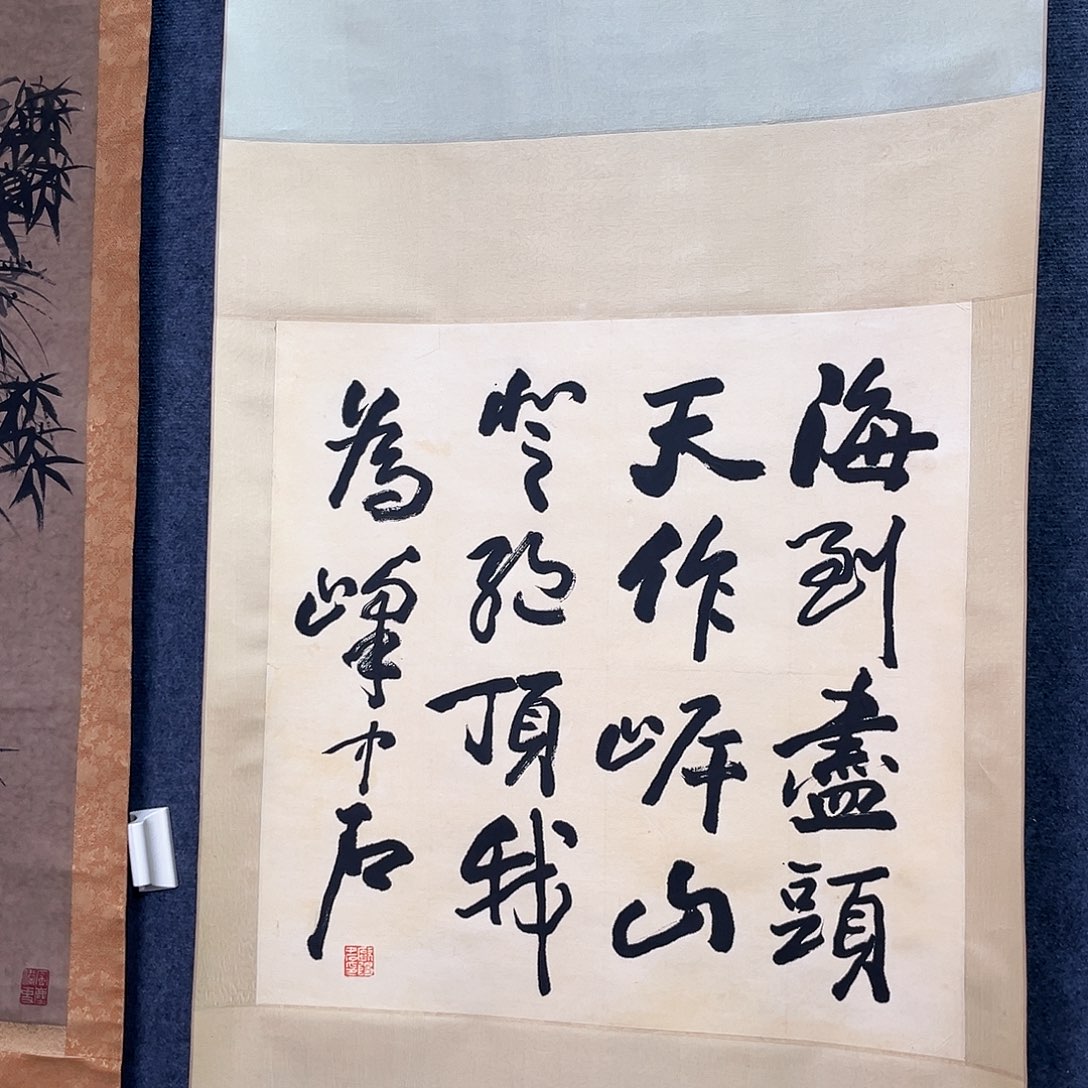 海到盡頭
天作岸山
登絕頂我
為峰中石